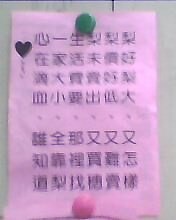 梨好梨大又怎樣
梨價好低又難賣
梨未賣出又買穗
生活費要那裡找
一家大小全靠梨
心在滴血誰知道